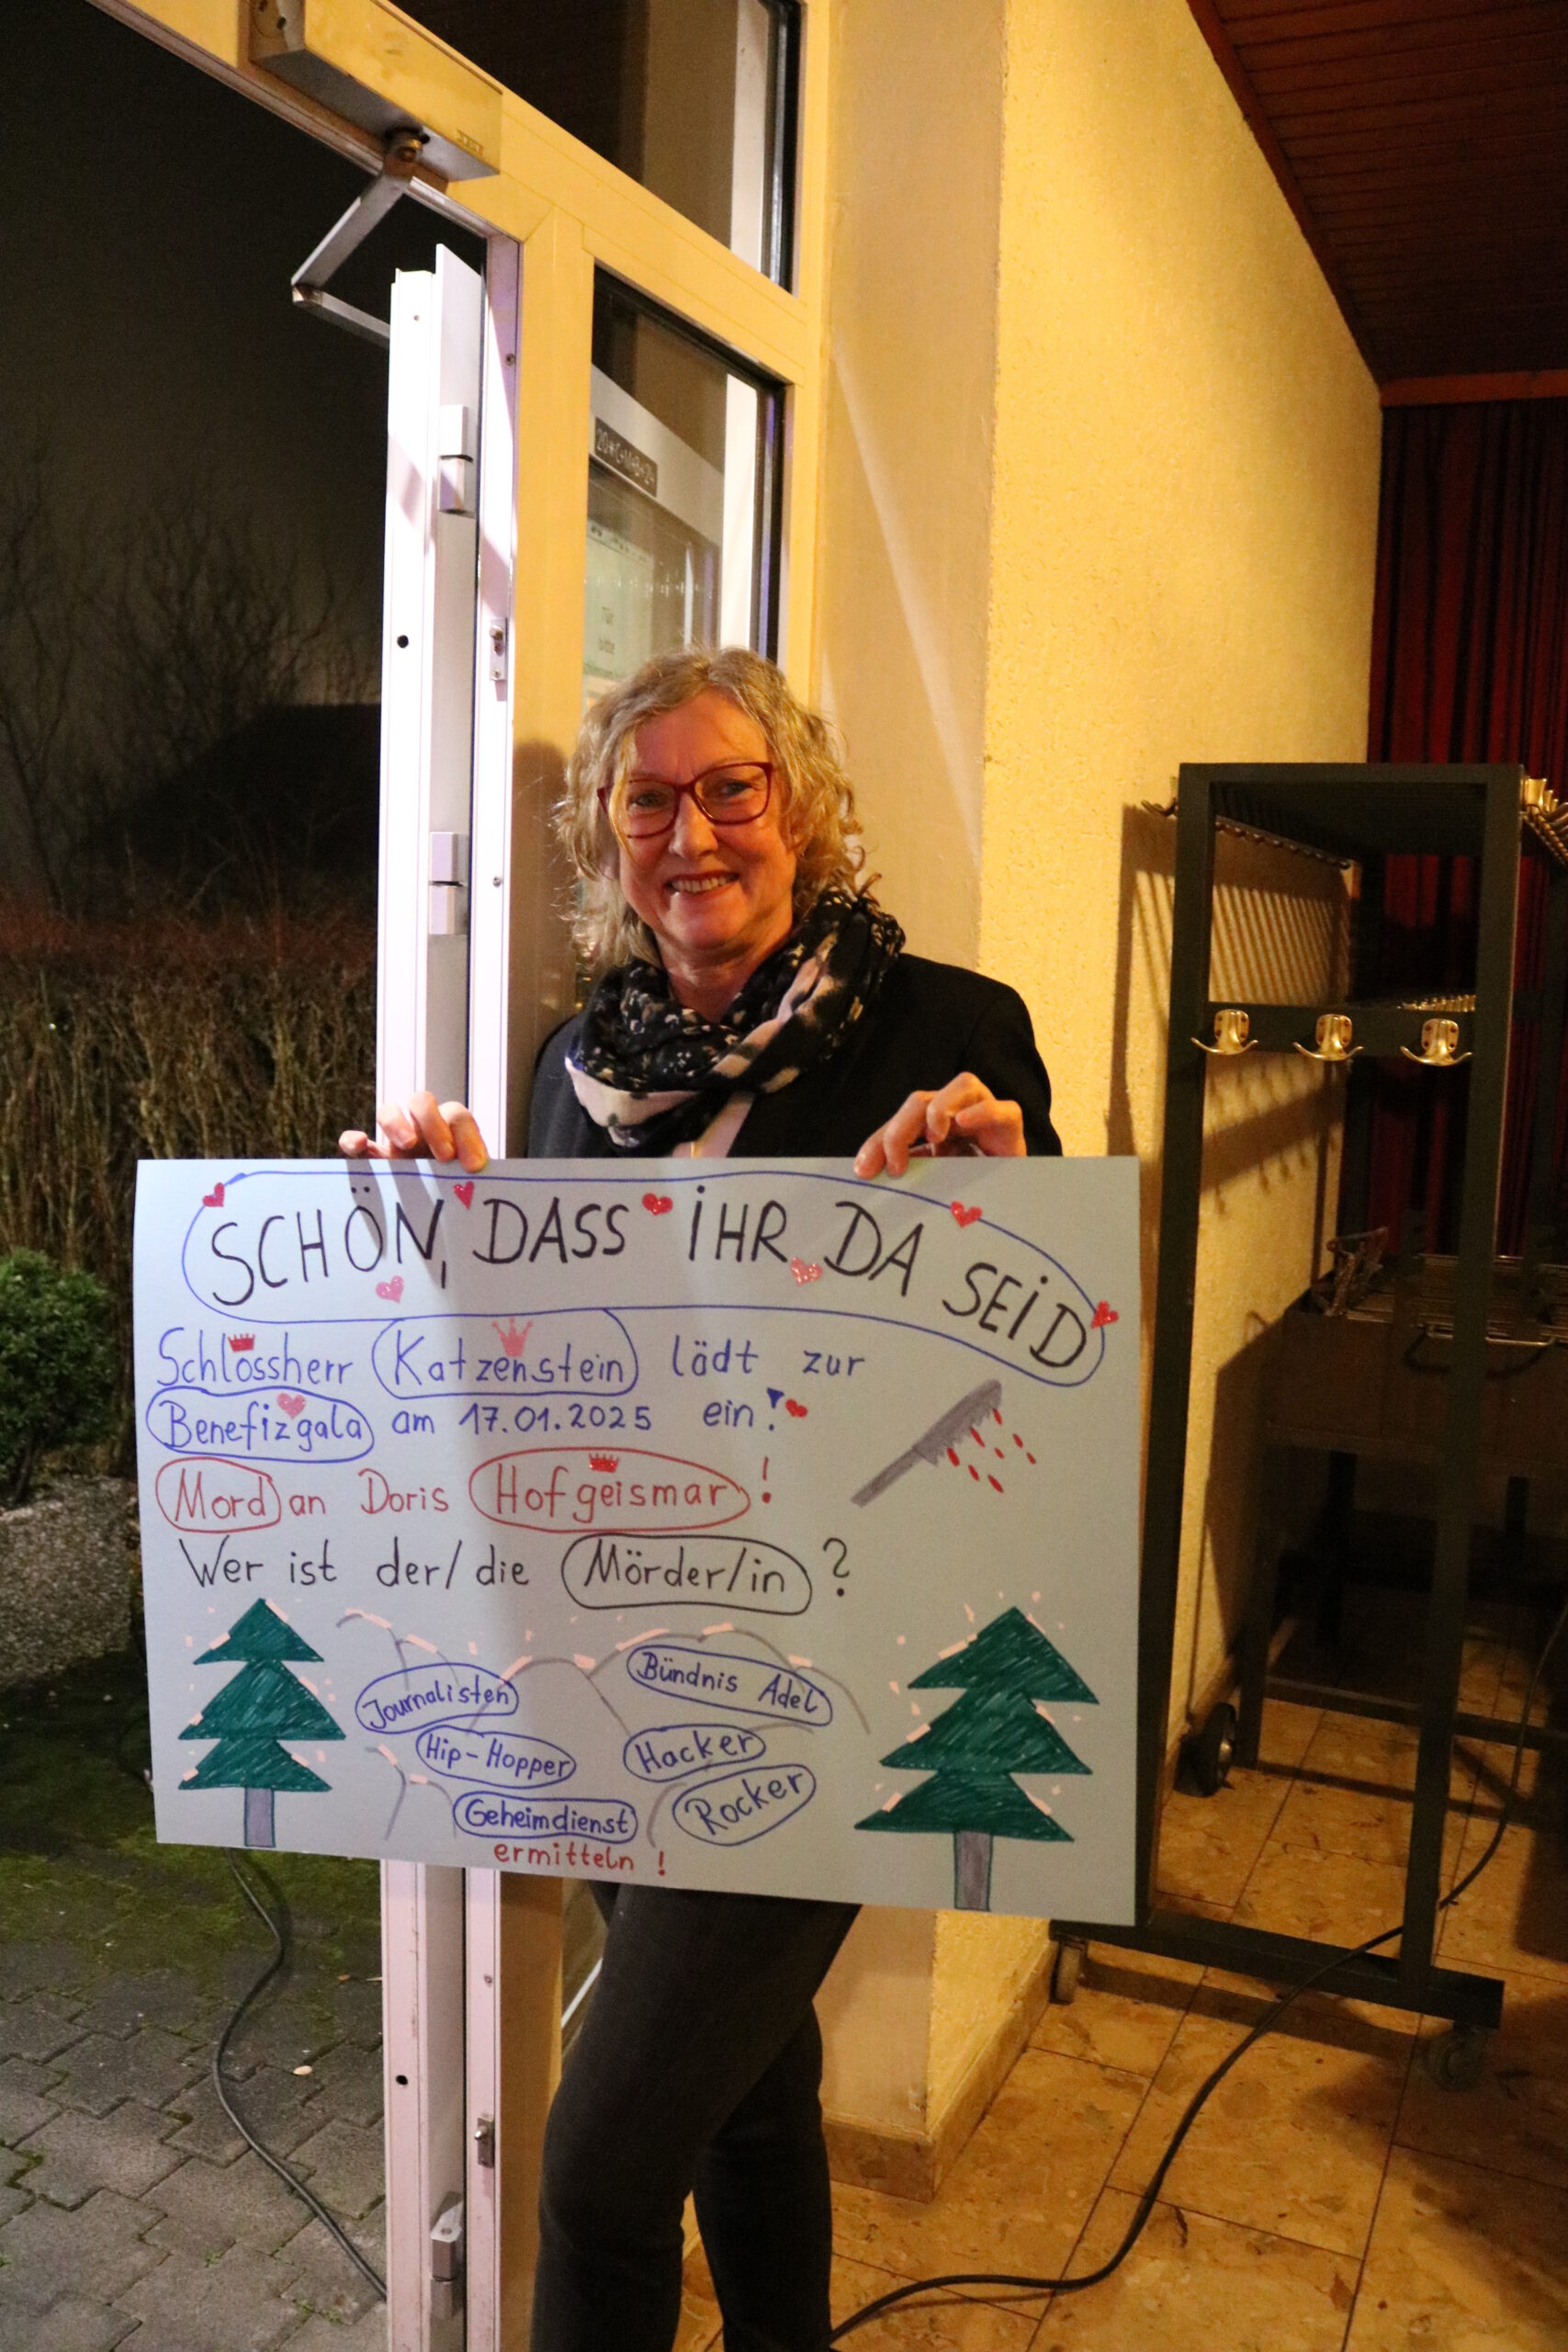 20*C+M+B+24
Tür
bitte
SCHÖN, DASS IHR DA SEID
Schlossherr Katzenstein lädt zur
Benefizgala am 17.01.2025 ein!
Mord an Doris Hofgeismar!
Wer ist der/die Mörder/in?
Journalisten
Bündnis Adel
Hip-Hopper
Hacker
Geheimdienst
Rocker
ermitteln!